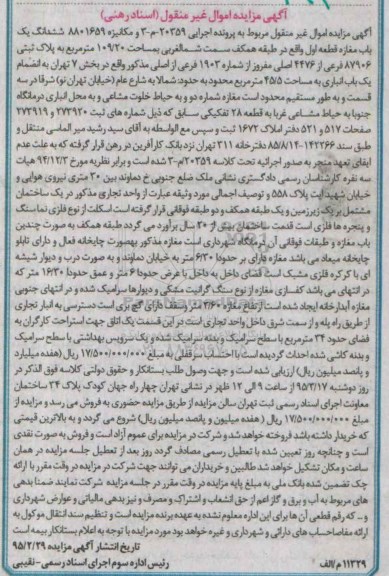 آگهی مزایده اموال غیر منقول (اسناد رهنی)
آگهی مزایده اموال غیر منقول مربوط به پرونده اجرایی ۲۰۳۵۹-م-۳ و مکانیزه ۸۸۰۱۶۵۹ ششدانگ یک
باب مغازه قطعه اول واقع در طبقه همکف سمت شمالغربی بمساحت ۱۰۹/۲۰ مترمربع به پلاک ثبتی
۸۷۹۰۶ فرعی از ۴۴۷۶ اصلی مفروز از شماره ۱۹۰۳ فرعی از اصلی مذکور واقع در بخش ۷ تهران به انضمام
یک باب انباری به مساحت ۴۵/۵ مترمربع محدود به حدود: شمالا به شارع عام (خیابان تهران نو) شرقا در سه
قسمت و به طور مستقیم محدود است مغازه شماره دو و به حیاط خلوت مشاعی و به محل انباری درمانگاه
جنوبا به حیاط مشاعی غربا به قطعه ۲۸ تفکیکی سابق که ذیل شماره های ثبت ۲۷۳۹۲۰ و ۲۷۳۹۱۹
صفحات ۵۱۷ و ۵۲۱ دفتر املاک ۱۶۷۲ ثبت و سپس مع الواسطه به آقای سید رشید میر الماسی منتقل و
طبق سند ۱۴۲۲۶۶-۸۵/۸/۱۴ دفترخانه ۳۱۱ تهران نزد بانک کارآفرین در رهن قرار گرفته که به علت عدم
ایفای تعهد منجر به صدور اجرائیه تحت کلاسه ۲۰۳۵۹/م-۳ شده است و برابر نظریه مورخ ۹۴/۱۱/۳ هیات
سه نفره کارشناسان رسمی دادگستری نشانی ملک ضلع جنوبی خ دماوند بین ۳۰ متری نیروی هوایی و
خیابان شهید آیت پلاک ۵۵۸ و توصیف اجمالی مورد وثیقه عبارت از واحد تجاری مذکور در یک ساختمان
مشتمل بر یک زیرزمین و یک طبقه همکف و دو طبقه فوقانی قرار گرفته است اسکلت از نوع فلزی نما سنگ
و پنجره ها فلزی است قدمت ساختمان بیش از ۲۰ سال برآورد می گردد طبقه همکف به صورت چندین
باب مغازه و طبقات فوقانی آن درمانگاه شهرداری است مغازه مذکور بهصورت چاپخانه فعال و دارای تابلو
چاپخانه میعاد می باشد مغازه دارای بر حدودا ۶/۳۰ متر به خیابان دماوند و به صورت درب و دیوار شیشه
ای با کرکره فلزی مشبک است فضای داخل به داخل با عرض حدودا ۶ متر و عمق حدودا ۱۶/۳۰ متر که
در انتهای می باشد کفسازی مغازه از نوع سنگ گرانیت مشکی و دیوارها سرامیک شده و در انتهای جنوبی
مغازه آبدارخانه ایجاد شده است ارتفاع مغازه ۳/۶۰ متر و سقف دارای گچ بری است دسترسی به انبار تجاری
از طریق راه پله و از سمت شرق داخل واحد تجاری است در این قسمت یک اتاق جهت استراحت کارگران به
فضای حدود ۲۴ مترمربع با سطح سرامیک و بدنه سرامیک شده و یک سرویس بهداشتی با سطح سرامیک
و بدنه کاشی شده احداث گردیده است با احتساب سرقفلی به مبلغ ۱۷/۵۰۰/۰۰۰/۰۰۰ ریال (هفده میلیارد
و پانصد میلیون ریال) ارزیابی شده است و جهت وصول طلب بستانکار و حقوق دولتی کلاسه فوق الذکر در
روز دوشنبه ۹۵/۳/۱۷ از ساعت ۹ الی ۱۲ ظهر در نشانی تهران چهار راه جهان کودک پلاک ۲۴ ساختمان
معاونت اجرای اسناد رسمی ثبت تهران سالن مزایده از طریق مزایده حضوری به فروش می رسد و مزایده از
مبلغ ۱۷/۵۰۰/۰۰۰/۰۰۰ ریال (هفده میلیون و پانصد میلیون ریال) شروع می گردد و به بالاترین قیمتی
که خریدار داشته باشد فروخته خواهد شد و شرکت در مزایده برای عموم آزاد است و فروش به صورت نقدی
است و چنانچه روز تعیین شده با تعطیل رسمی مصادف گردد روز بعد از تعطیل جلسه مزایده در همان
ساعت و مکان تشکیل خواهد شد طالبین و خریداران می توانند جهت شرکت در مزایده در وقت مقرر با ارائه
چک تضمین شده بانک ملی به مبلغ پایه مزایده در وقت مقرر در جلسه مزایده شرکت نمایند ضمنا بدهی
های مربوط به آب و برق و گاز اعم از حق انشعاب و اشتراک و مصرف و نیز بدهی مالیاتی و عوارض شهرداری
و... که رقم قطعی آن ها برای این اداره معلوم نشده به عهده برنده مزایده است و تنظیم سند انتقال موکول به
ارائه مفاصاحساب های دارائی و شهرداری و غیره خواهد بود مورد مزایده با توجه به اعلام بستانکار بیمه است
تاریخ انتشار آگهی مزایده ۹۵/۲/۲۹
۱۱۳۲۹ م/الف رئیس اداره سوم اجرای اسناد رسمی-نقیبی